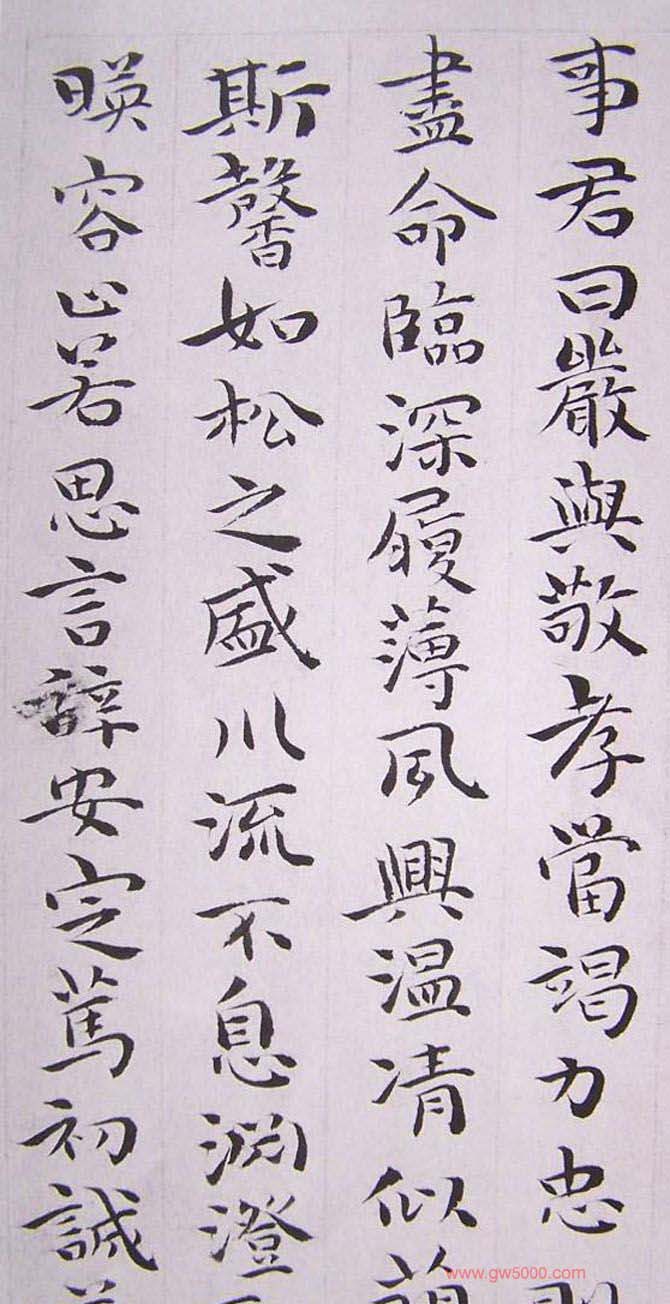 事君曰嚴與敬孝當竭力忠
盡命臨深履薄夙興温凊似蘭
斯馨如松之盛川流不息渊澄
暎容止若思言辞安定篤初誠
www.gw5000.com